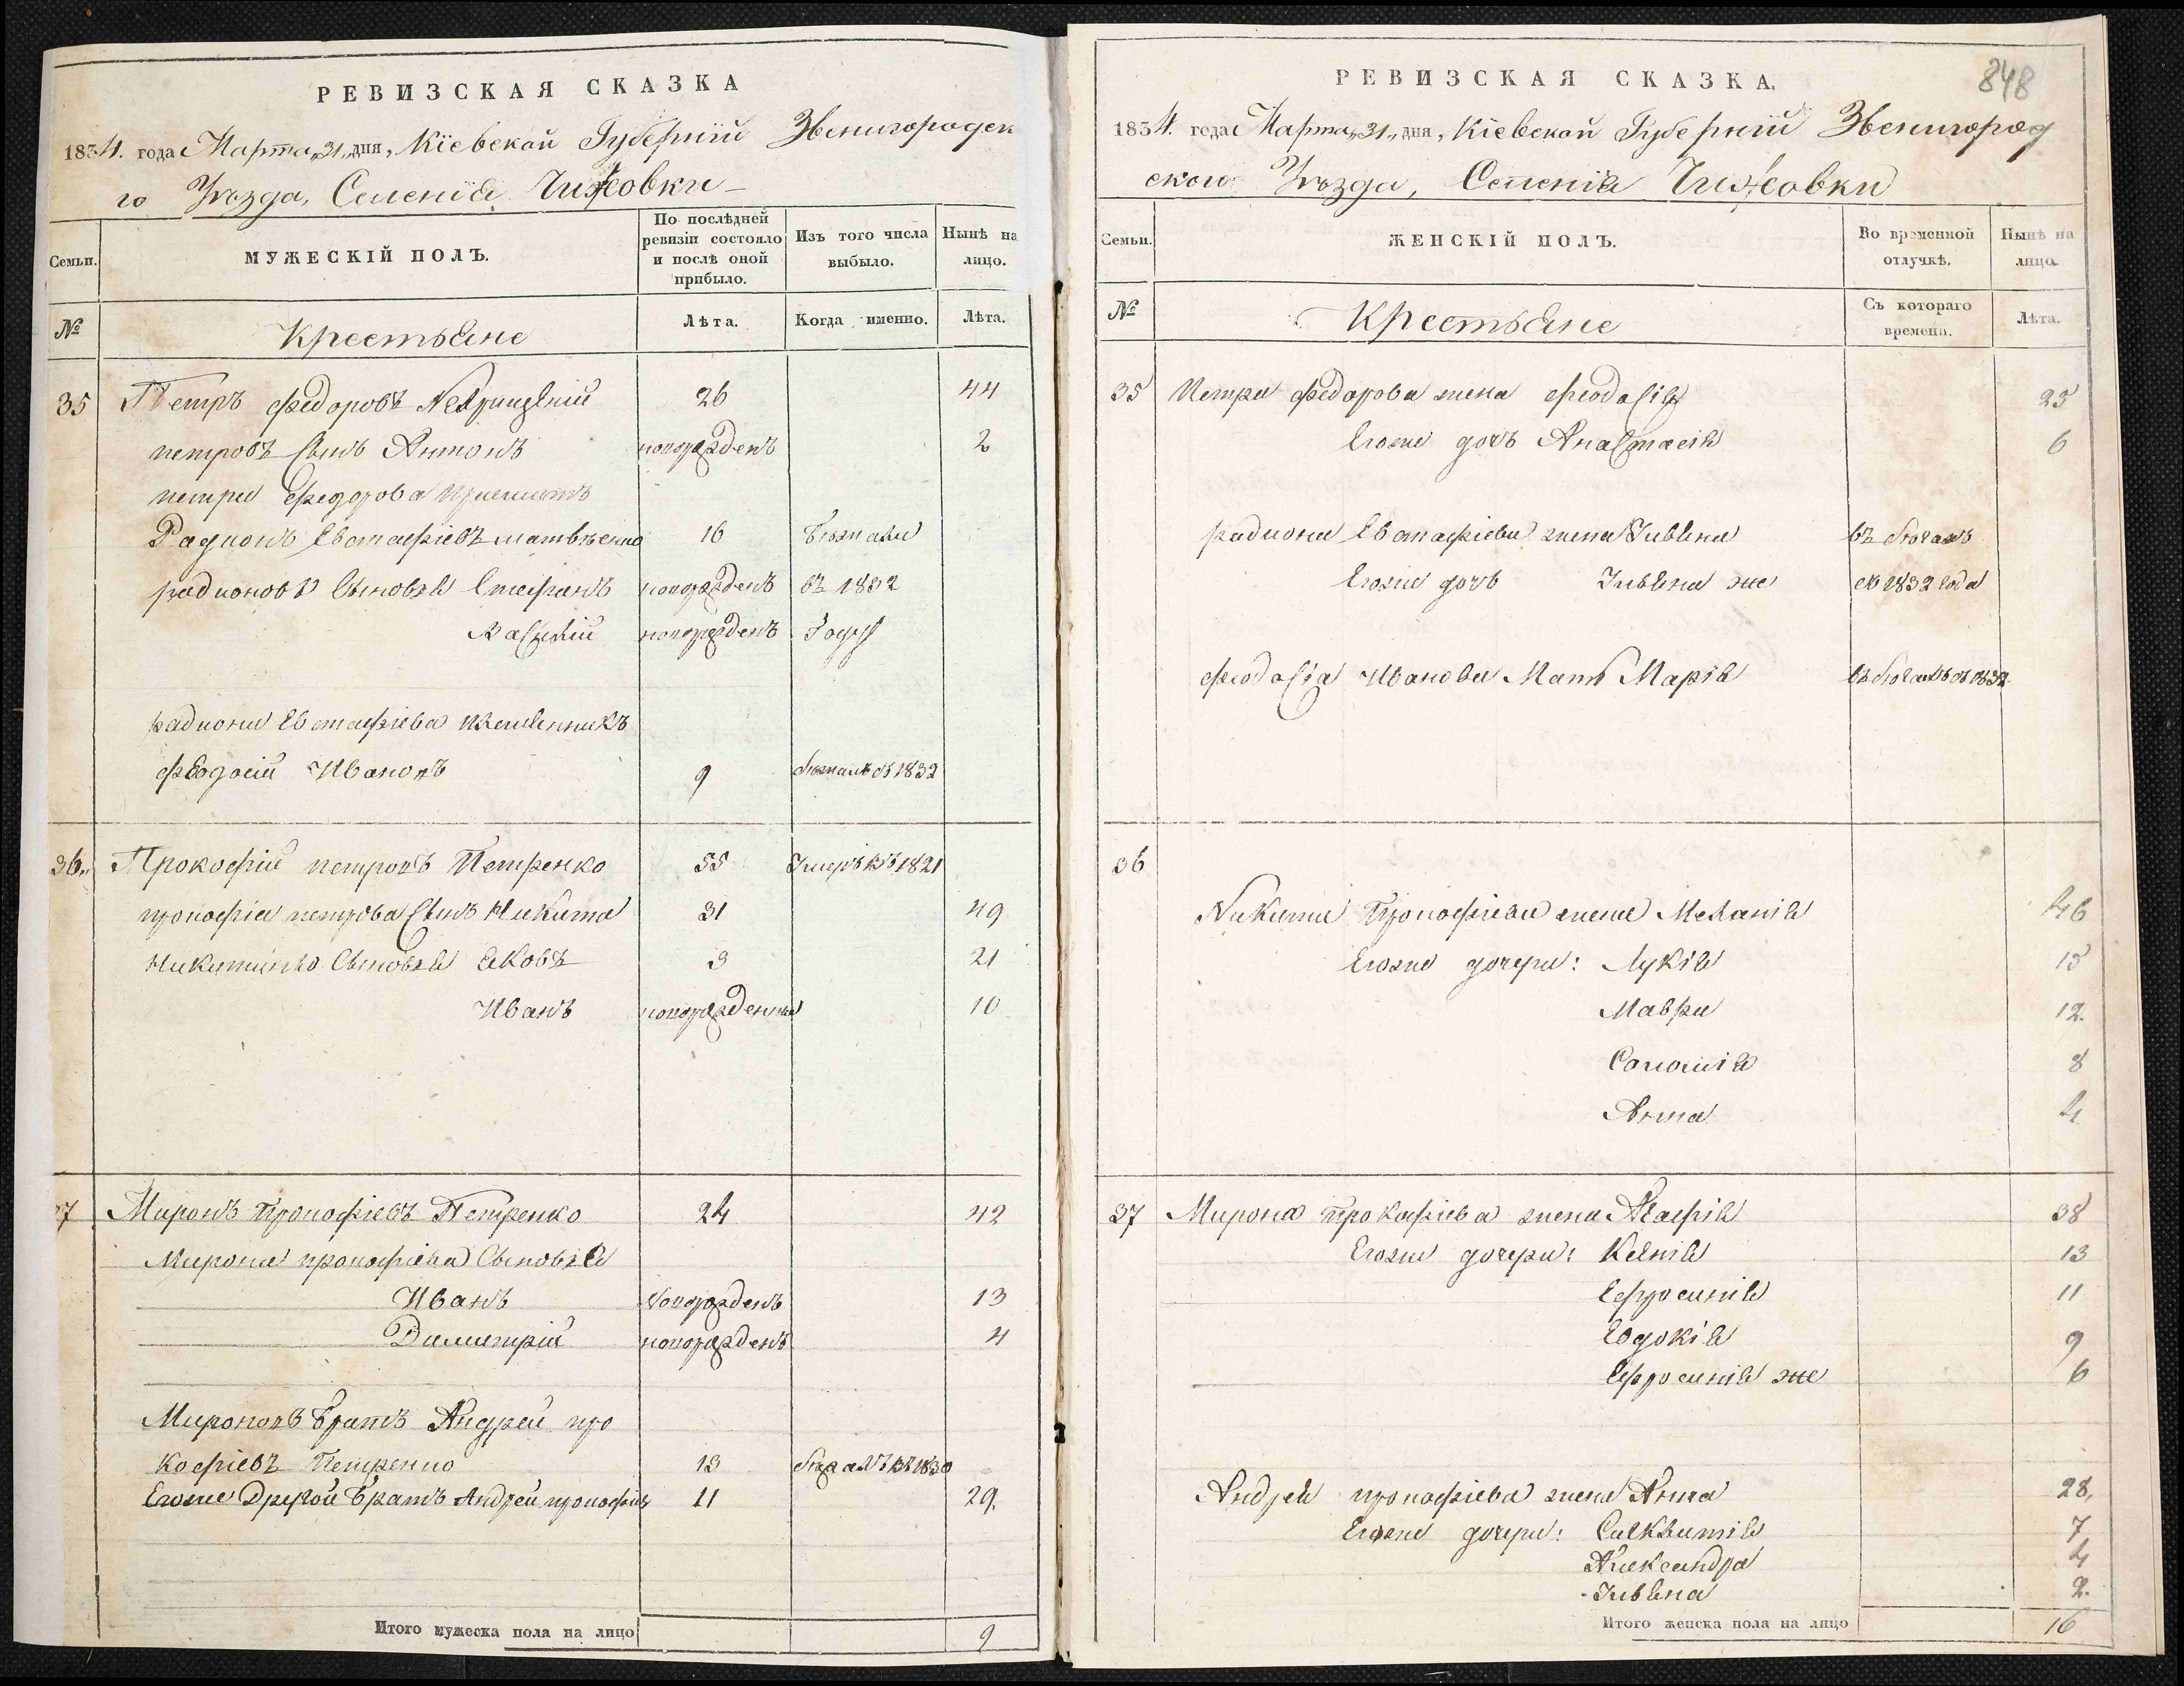 РЕВИЗСКАЯ СКАЗКА
1834. года Марта „31„ дня, Кіевской Губерніи Звенигородск
го Уѣзда, Селенія Чижовки
Семьи.
МУЖЕСКІЙ ПОЛЪ.
По послѣдней ревизіи состояло и послѣ оной прибыло.
Изъ того числа выбыло.
Нынѣ на лицо.
№
Крестьяне
Лѣта.
Когда именно.
Лѣта.
35 Петръ Федоровъ 26 44
петровъ сынъ Антонъ новорожденъ 2
петра Федорова
Радионъ Евстафіевъ 16 бѣжали
радионовы сыновья Стефанъ новорожденъ въ 1832
Василій новорожденъ Году
радиона Евстафіева племянникъ
феодосій Ивановъ 9 бѣжалъ въ 1832
36„ Прокофій петровъ Петренко 55 Умеръ въ 1821
прокофія петрова сынъ Никита 31 49
Никитины сыновья Яковъ 3 21
Иванъ новорожденны 10
37 Миронъ Прокофіевъ Петренко 24 42
Мирона прокофіева сыновья
Иванъ Новорожденъ 13
Димитрій новорожденъ 4
Мироновъ братъ Андрей про
кофіевъ Петренко 13 въ 1830
Егоже Другой братъ Андрей прокофіевъ 11 29.
Итого мужеска пола на лицо 9
848
РЕВИЗСКАЯ СКАЗКА.
1834. года Марта „31„ дня, Кіевской Губерніи Звенигород
ского Уѣзда, Селенія Чижовки
Семьи.
ЖЕНСКІЙ ПОЛЪ.
Во временной отлучкѣ.
Нынѣ на лицо.
№
Крестьяне
Съ котораго времени.
Лѣта.
35 Петра Федорова жена феодосія 25
Егоже дочь Анастасія 6
радиона Евстафіева жена Ульяна въ бѣгахъ
Егоже дочь Ульяна же съ 1832 года
феодосія Иванова Мать Марія въ бѣгахъ съ 1832
36
Никиты Прокофіева жена Меланія 46
Егоже дочери: Лукія 15
Мавра 12.
Соломія 8
Анна 4
37 Мирона прокофіева жена Агафія 38
Егоже дочери: Ксенія 13
Ефросинія 11
Евдокія 9
Ефросинія же 6
Андрея прокофіева жена Анна 28,
Егоже дочери: 7
Александра 4
Ульяна 2.
Итого женска пола на лицо 16